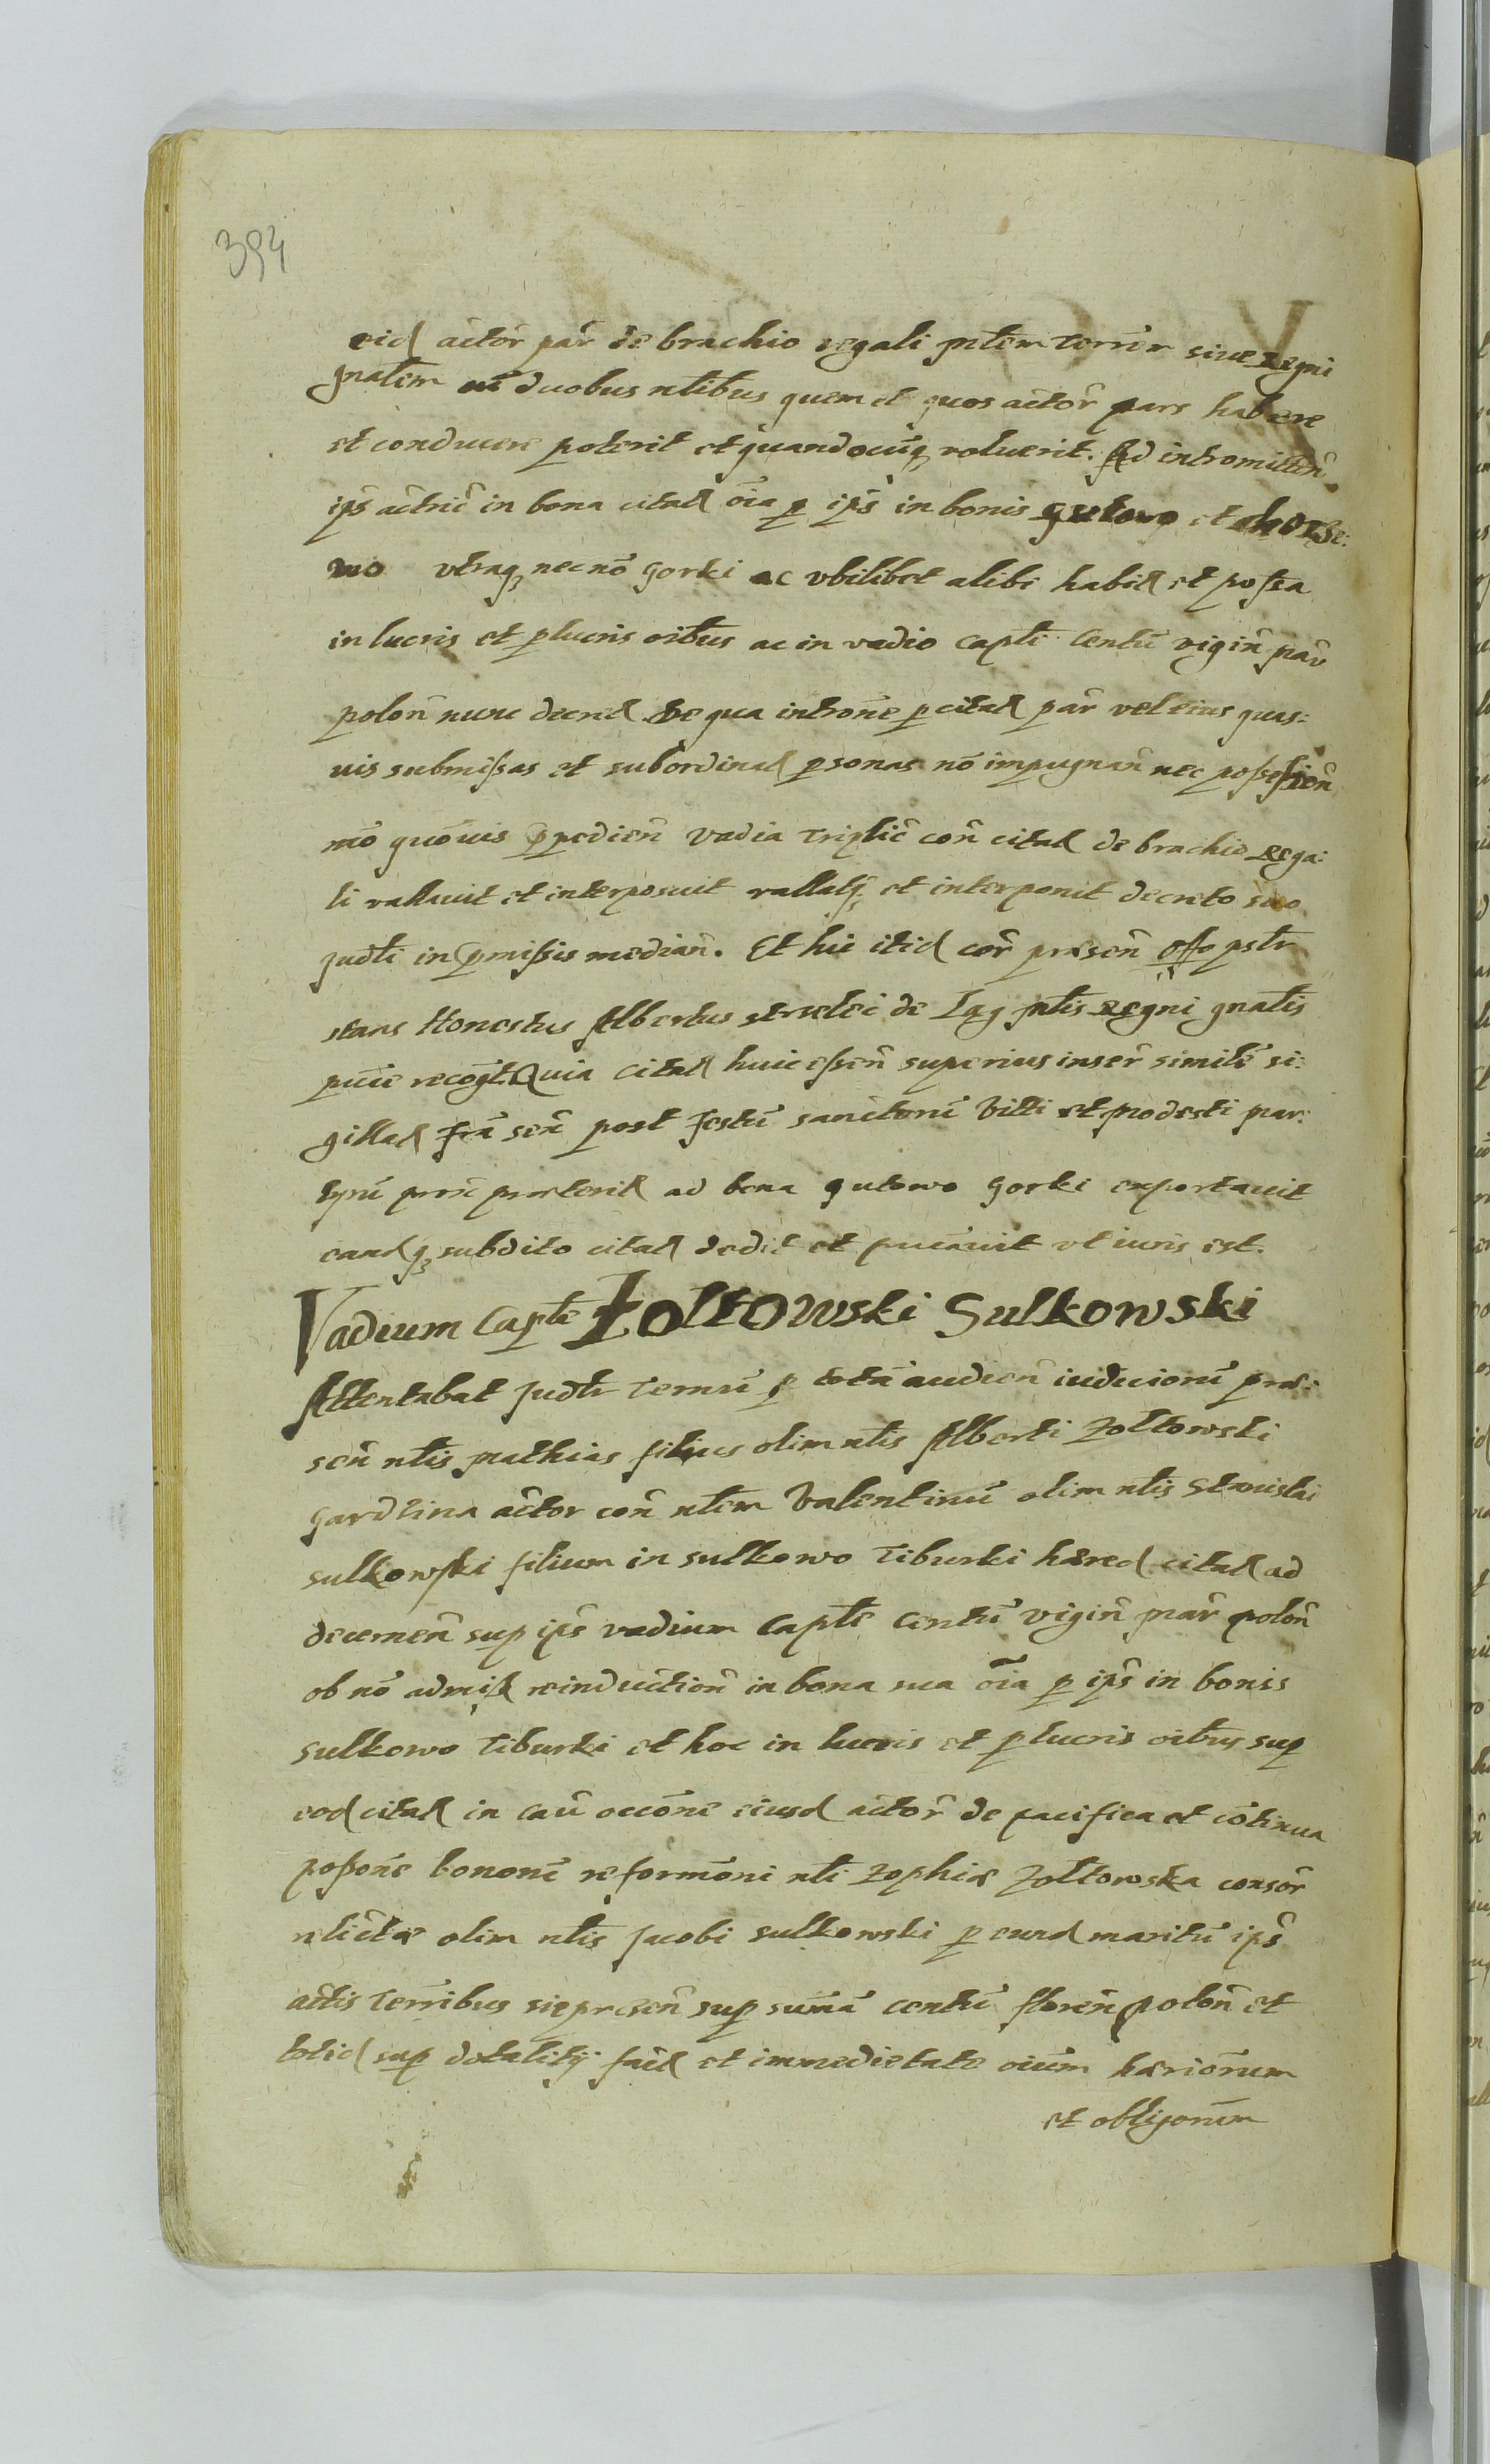 394
eid actor par de brachio regali mltem terrem siue Regni
gnalem cu duobus nlibus quem et quos actor pars habere
et conducere poterit et quandocuq voluerit. Ad intromitten
ips actric in bona citat oia p ips in bonis gutowo et chorze:
wo utraq necno Gorki ac vbilibet alibi habit et possa
in lucris et plucris oibus ac in vadio Capli Centu vigin mar
polon nunc decret De qua introne p citat par vel eius quas:
uis submissas et subordinat psonas no impugnan nec possession
mo quouis ppedien vadia triplic con citat de brachio Rega:
li vallauit et interposuit vallatq et interponit decreto suo
Judli in pmissis median. Et hic itid cor presen offo pstr
stans Honestus Albertus strzelec de Łąg mlis Regni gnalis
puce recogt. Quia citat huic essen superius inser simile si:
gillat fra sexa post festu sanctoru Viti et Modesti mar:
tyru prox preterit ad bona gutowo Gorki exportauit
eandq subdito citat dedit et pucauit vt iuris est.
Vadium Caple Żołtowski Sulkowski
Attentabat Judlr Termu p tota audien iudicioru prae:
sen nlis Mathias filius olim nlis Alberti Zołtowski
Gardzina actor con nlem Valentinu olim nlis Stanislai
sulkowski filium in sulkowo Tiburki hæred citat ad
decernen sup ips vadium Caple Centu vigin mar polon
ob no admis reinduction in bona sua oia p ips in bonis
sulkowo Tiburki et hoc in lucris et plucris oibus sup
eod citat in cau occone eiusd actor de pacifica et cotinua
possone bonoru reformoni nli Zophiæ Zołtowska consor
relictæ olim nlis Jacobi sulkowski p eund maritu ips
actis Terribus siepresen sup suma centu floren polon et
totid sup dotalitij fact et immedietate oium hæriorum
et obligonum